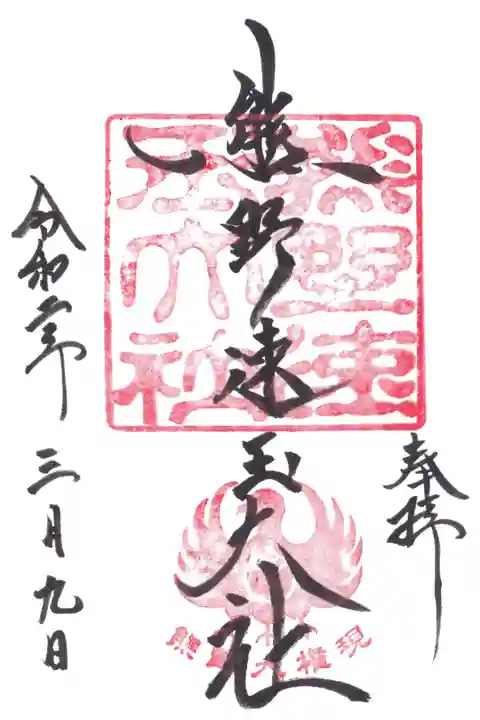 奉拝
熊野速玉大社
令和二年 三月九日
熊野速玉大社
熊野大権現